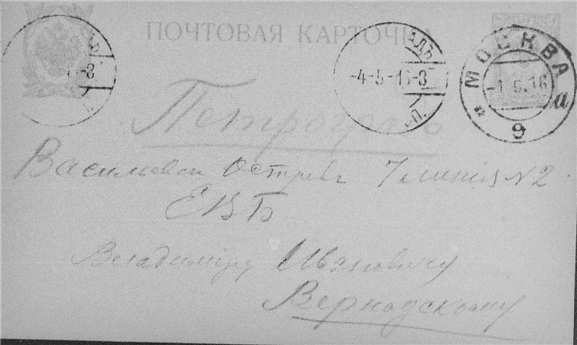 ПОЧТОВАЯ КАРТОЧКА
АДЪ
-4-5-16-8
МОСКВА
-1.5.16
а
9
Петроградъ
Василевск Островъ 7 линия N2
ЕВБ
Владиміру Ивановичу
Вернадскому